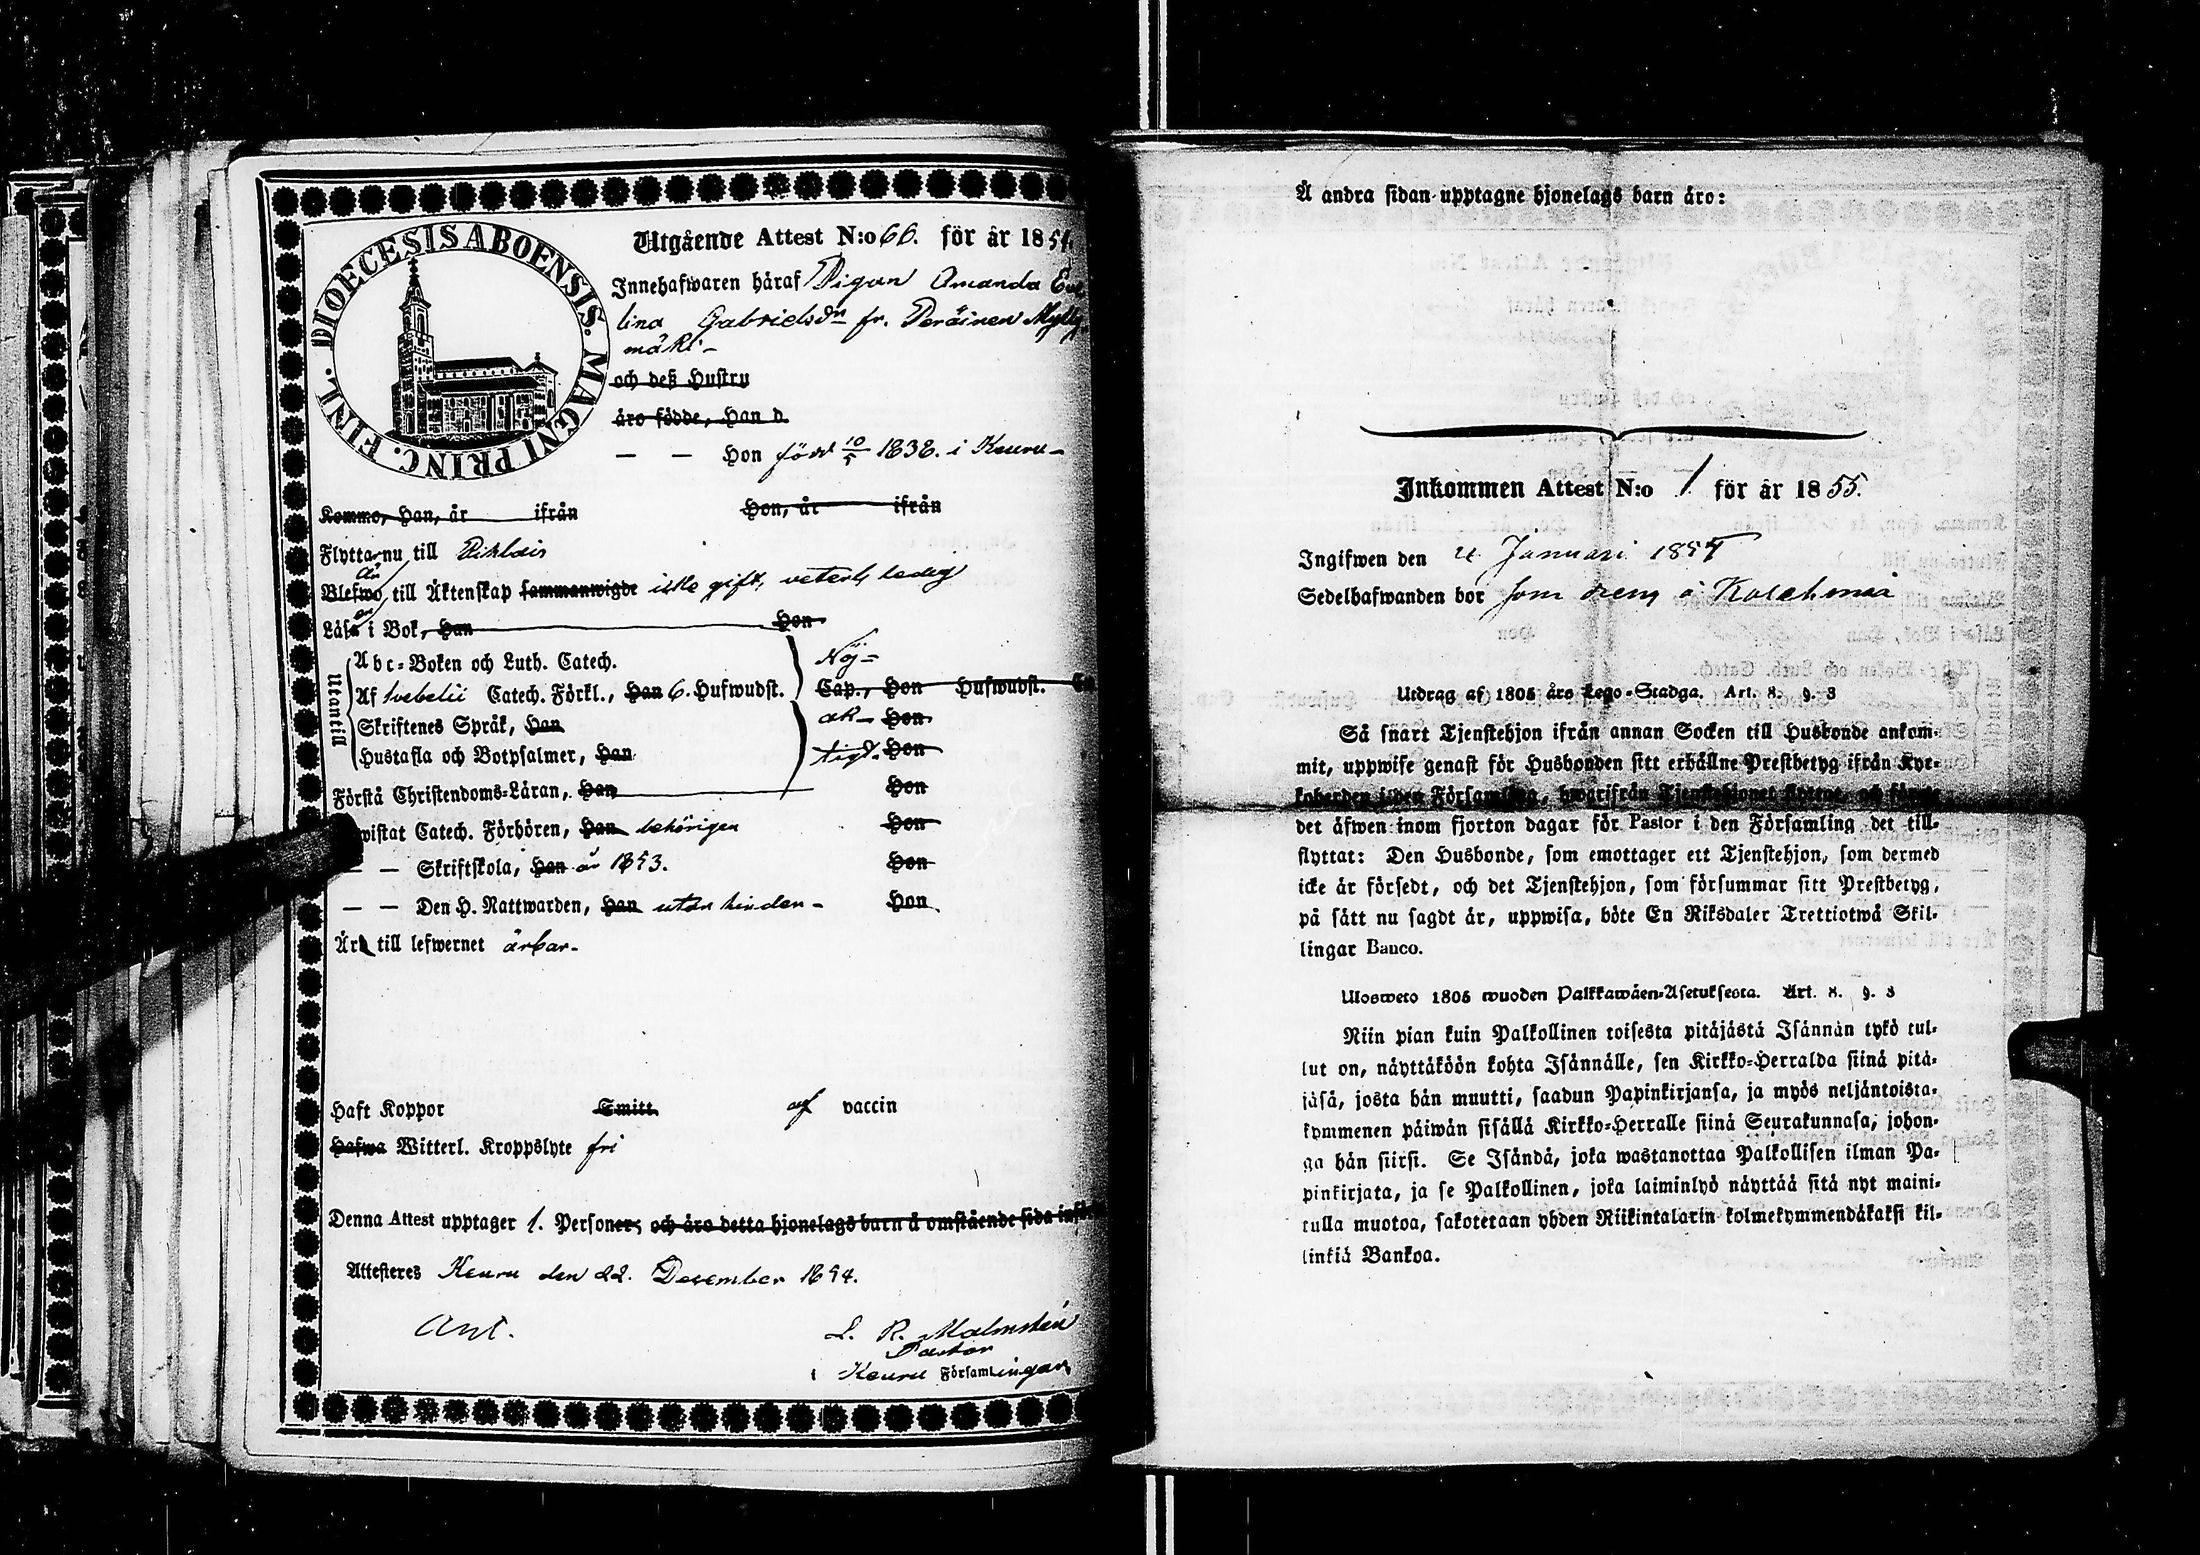 DIOECESIS ABOENSIS. MAGNI PRINC. FINL.
Utgående Attest N:o 66. för år 1854.
Innehafwaren häraf Pigan Amanda Eve
lina Gabrielsdr fr. Peräinen Mylly
mäki -
och deß Hustru
äro födde, Han d.
— — Hon född 10/5 1838. i Keuru -
Komne, Han, år ifrån Hon, år ifrån
Flytta nu till Pihlais
är
Blefwo till Äktenskap sammanwigde icke gift, veterl. ledig
er
Läsa i Bok, Han Hon
Utantill
Abc-Boken och Luth. Catech. Nöj-
Af Svebelii Catech. Förkl., Han 6. Hufwudst. Cap., Hon Hufwudst.
Skriftenes Språk, Han ak- Hon
Hustafla och Botpsalmer, Han tigt. Hon
Förstå Christendoms-Läran, Han Hon
wistat Catech. Förhören, Han behörigen Hon
— — Skriftskola, Han år 1853. Hon
— — Den H. Nattwarden, Han utan hinder - Hon
Är till lefwernet ärbar -
Haft Koppor Smitt. af vaccin
Hafwa Witterl. Kroppslyte fri
Denna Attest upptager 1. Personer; och äro detta hjonelags barn å omstående sida
Attesteres Keuru den 22. December 1854.
Ant. L. R. Malmstén
Pastor
i Keuru Församlingar
Å andra sidan upptagne hjonelags barn äro:
Inkommen Attest N:o 1 för år 1855.
Ingifwen den 4 Januari 1855
Sedelhafwanden bor som dräng å
Utdrag af 1805 års Lego-Stadga. Art. 8. §. 3
Så snart Tjenstehjon ifrån annan Socken till Husbonde ankom-
mit, uppwise genast för Husbonden sitt erhållne Prestbetyg ifrån Kyr-
koherden i den Församling, hwarifrån Tjenstehjonet flyttat, och förete
det äfwen inom fjorton dagar för Pastor i den Församling det till-
flyttat: Den Husbonde, som emottager ett Tjenstehjon, som dermed
icke är försedt, och det Tjenstehjon, som försummar sitt Prestbetyg,
på sätt nu sagdt är, uppwisa, böte En Riksdaler Trettiotwå Skil-
lingar Banco.
Ulosweto 1805 wuoden Palkkawäen-Asetuksesta. Art. 8. §. 3
Niin pian kuin Palkollinen toisesta pitäjästä Isännän tykö tul-
lut on, näyttäköön kohta Isännälle, sen Kirkko-Herralda siinä pitä-
jäsä, josta hän muutti, saadun Papinkirjansa, ja myös neljäntoista-
kymmenen päiwän sisällä Kirkko-Herralle siinä Seurakunnasa, johon-
ga hän siirsi. Se Isändä, joka wastanottaa Palkollisen ilman Pa-
pinkirjata, ja se Palkollinen, joka laiminlyö näyttää sitä nyt maini-
tulla muotoa, sakotetaan yhden Riikintalarin kolmekymmendäkaksi kil-
linkiä Bankoa.